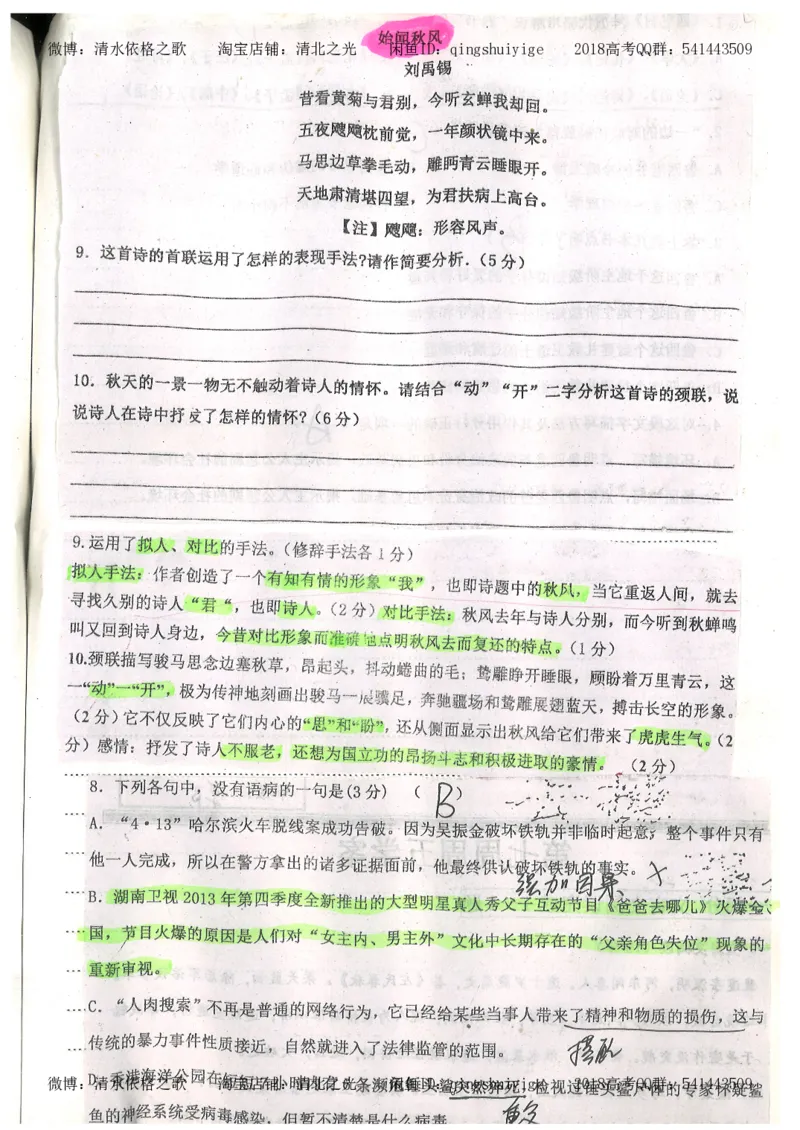 始闻秋风
微博：清水依格之歌 淘宝店铺：清北之光 闲鱼ID：qingshuiyige 2018高考QQ群：541443509
刘禹锡
昔看黄菊与君别，今听玄蝉我却回。
五夜飕飕枕前觉，一年颜状镜中来。
马思边草拳毛动，雕眄青云睡眼开。
天地肃清堪四望，为君扶病上高台。
【注】飕飕：形容风声。
9．这首诗的首联运用了怎样的表现手法?请作简要分析.(5分)
10．秋天的一景一物无不触动着诗人的情怀。请结合“动”“开”二字分析这首诗的颈联，说
说诗人在诗中抒发了怎样的情怀？(6分)
9.运用了拟人、对比的手法。（修辞手法各1分）
拟人手法：作者创造了一个有知有情的形象“我”，也即诗题中的秋风，当它重返人间，就去
寻找久别的诗人“君“，也即诗人。（2分）对比手法：秋风去年与诗人分别，而今听到秋蝉鸣
叫又回到诗人身边，今昔对比形象而准确地点明秋风去而复还的特点。（1分）
10.颈联描写骏马思念边塞秋草，昂起头，抖动蜷曲的毛；鸷雕睁开睡眼，顾盼着万里青云，这
一“动”一“开”，极为传神地刻画出骏马一展骥足，奔驰疆场和鸷雕展翅蓝天，搏击长空的形象。
（2分）它不仅反映了它们内心的“思”和“盼”，还从侧面显示出秋风给它们带来了虎虎生气。（2
分）感情：抒发了诗人不服老，还想为国立功的昂扬斗志和积极进取的豪情。（2分）
8．下列各句中，没有语病的一句是(3分) （ B ）
A．“4·13”哈尔滨火车脱线案成功告破。因为吴振金破坏铁轨并非临时起意，整个事件只有
他一人完成，所以在警方拿出的诸多证据面前，他最终供认破坏铁轨的事实。
强加因果 ×
B．湖南卫视2013年第四季度全新推出的大型明星真人秀父子互动节目《爸爸去哪儿》火爆全
国，节目火爆的原因是人们对“女主内、男主外”文化中长期存在的“父亲角色失位”现象的
重新审视。
C．“人肉搜索”不再是普通的网络行为，它已经给某些当事人带来了精神和物质的损伤，这与
传统的暴力事件性质接近，自然就进入了法律监管的范围。
搭配
微博：清水依格之歌 淘宝店铺：清北之光 闲鱼ID：qingshuiyige 2018高考QQ群：541443509
D．香港海洋公园在短短五个小时内有6条濒危锤头鲨突然猝死，检视过锤头鲨尸体的专家怀疑鲨
鱼的神经系统受病毒感染，但暂不清楚是什么病毒